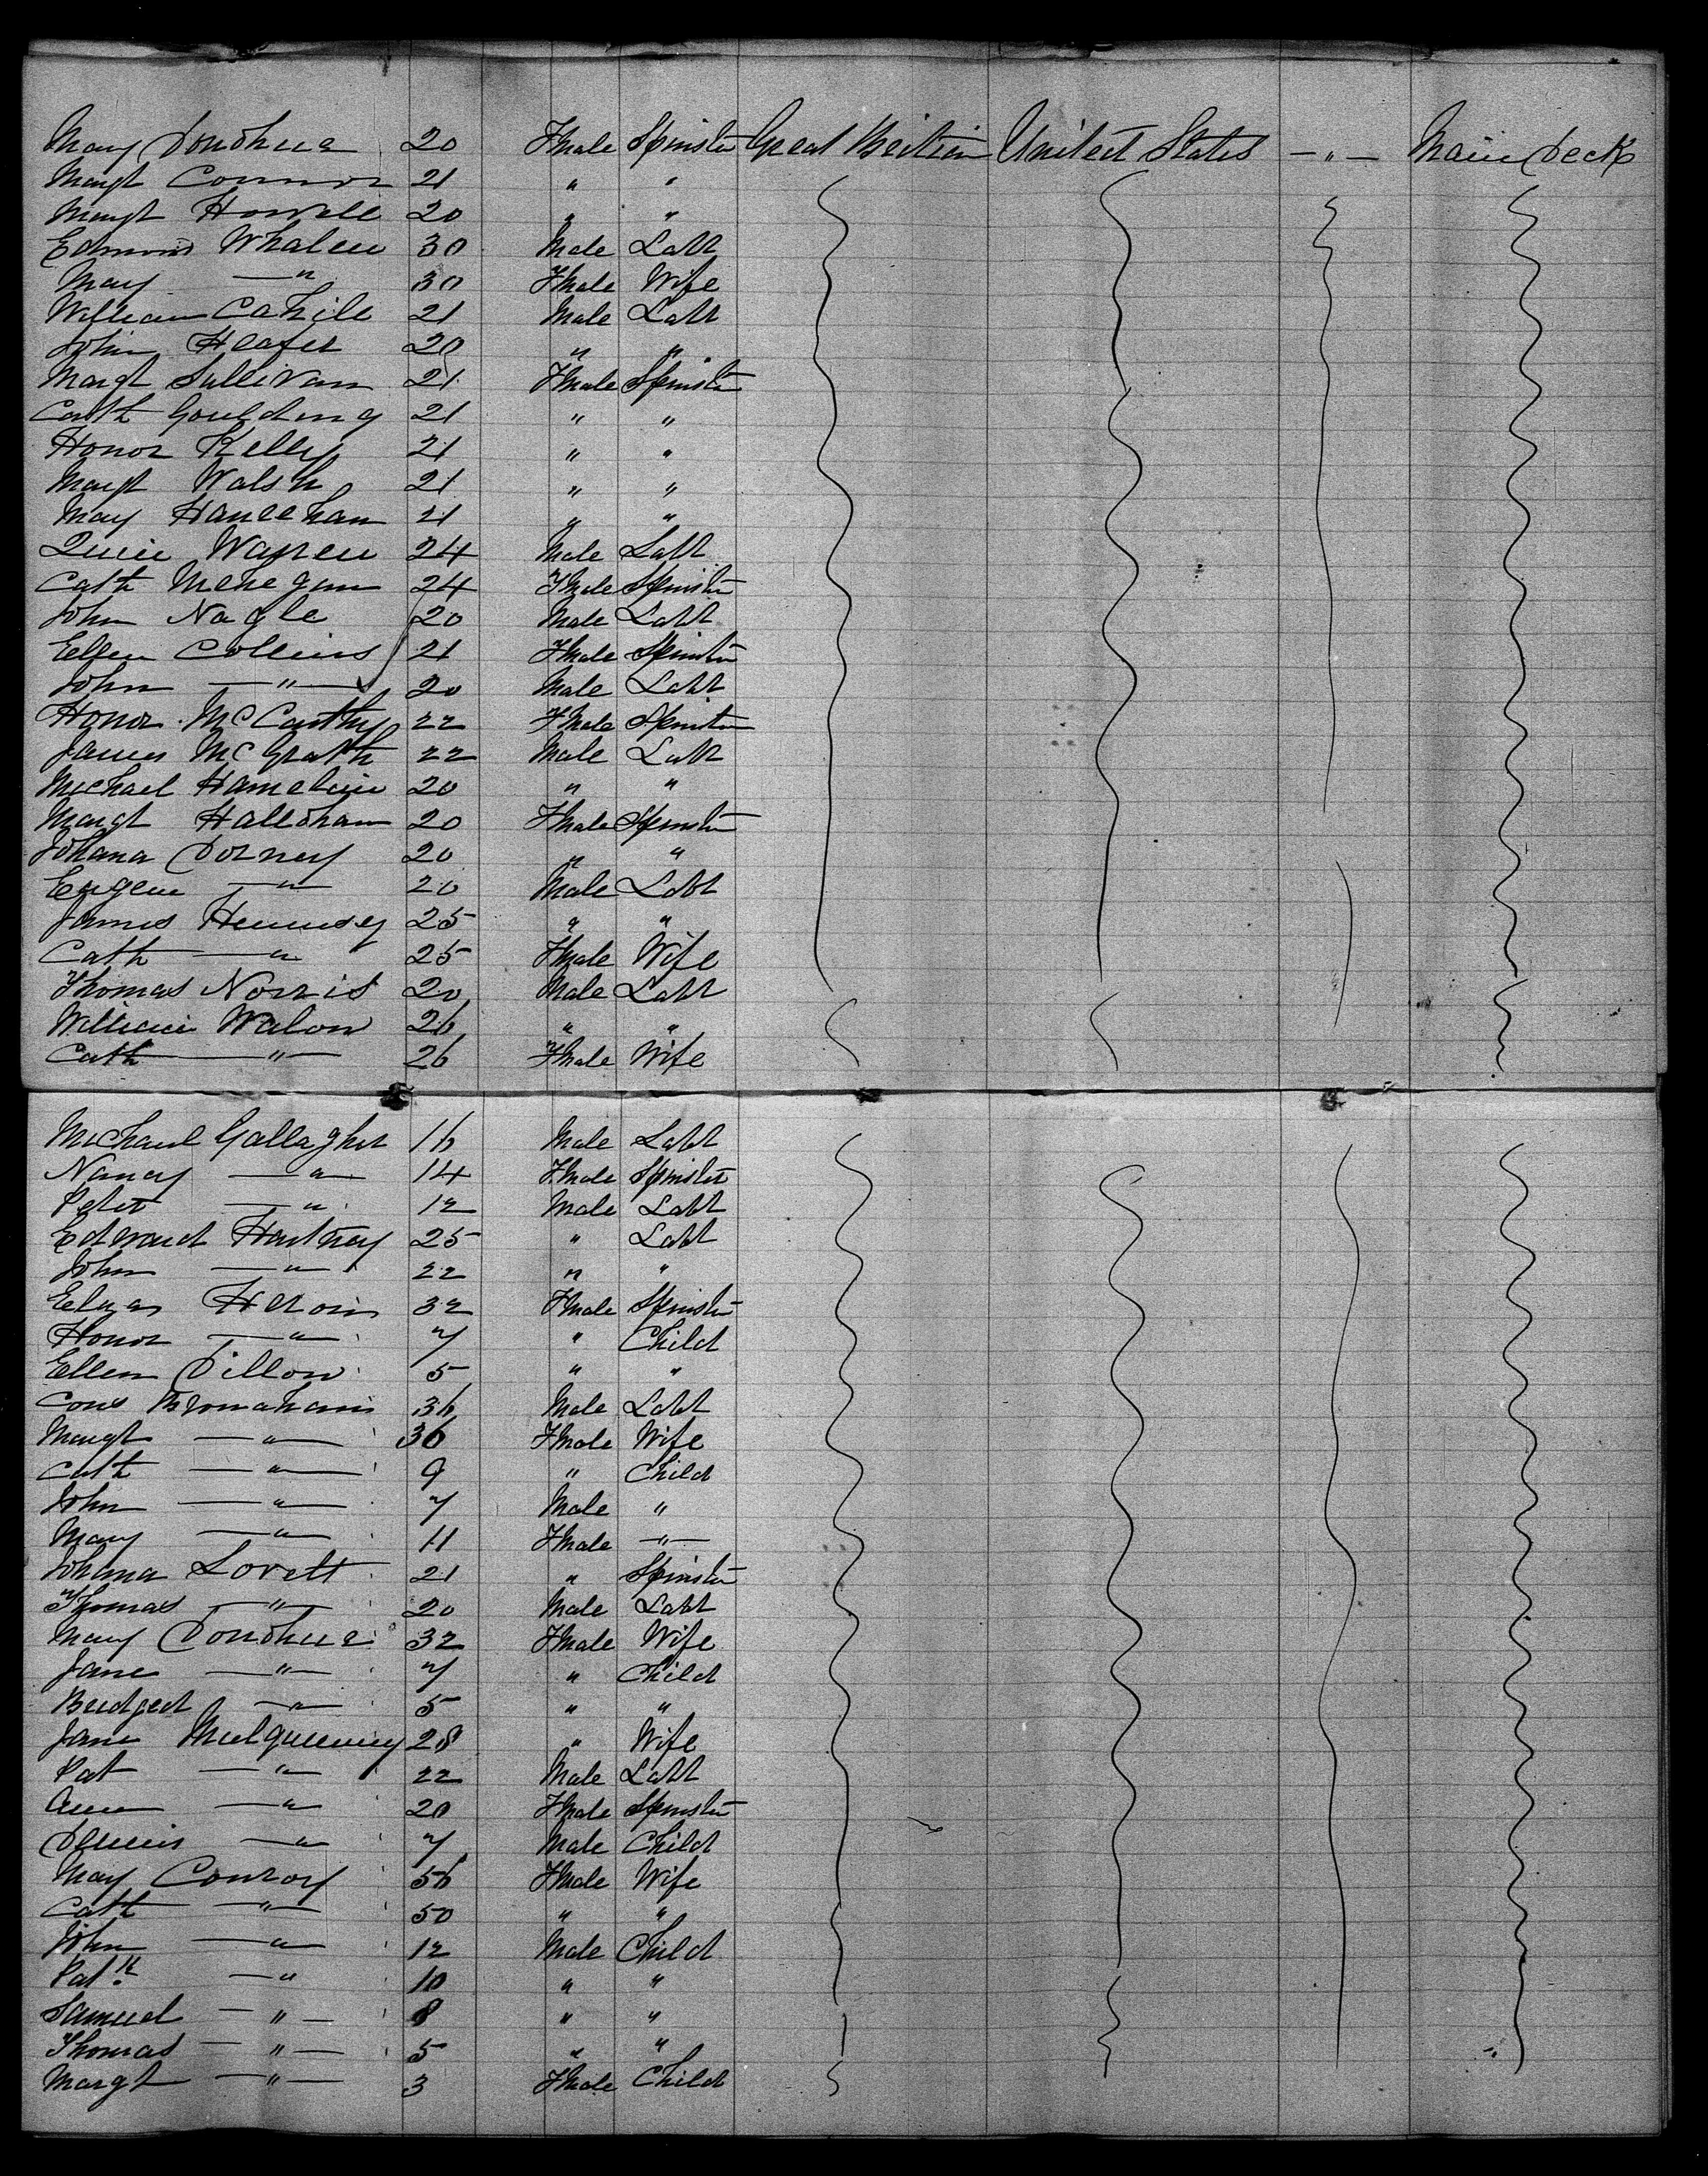 Mary Donohue 20 Fmale Spinster Great Britian United States — " — Main Deck
Margt Connor 21 " "
Margt Howell 20 " "
Edmond Whalen 30 Male Labr
Mary — " 30 Fmale Wife
William Cahill 21 Male Labr
John Heafer 20 " "
Margt Sullivan 21 Fmale Spinster
Cath Goulding 21 " "
Honor Kelly 21 " "
Margt Walsh 21 " "
Mary Haneehan 21 " "
Warren 24 Male Labr
Cath Menegan 24 Fmale Spinster
John Nagle 20 Male Labr
Ellen Collins 21 Fmale Spinster
John — " — 20 Male Labr
Honor McCarthy 22 Fmale Spinster
James McGrath 22 Male Labr
Michael 20 " "
Margt Halloran 20 Fmale Spinster
Johana Dorney 20 " "
Eugene — " — 20 Male Labr
James Hennesey 25 " "
Cath — " — 25 Fmale Wife
Thomas Norris 20 Male Labr
William Walon 26 " "
Cath — " — 26 Fmale Wife
Michael Gallagher 16 Male Labr
Nancy — " — 14 Fmale Spinster
Peter — " — 12 Male Labr
Edward Hartney 25 " Labr
John — " — 22 " "
Elyza Heroin 32 Fmale Spinster
Honor — " — 7 " Child
Ellen Dillon 5 " "
Cons 36 Male Labr
Margt — " — 36 Fmale Wife
Cath — " — 9 " Child
John — " — 7 Male "
Mary — " — 11 Fmale — " —
Johana Lovett 21 " Spinster
Thomas — " — 20 Male Labr
Mary Donohue 32 Fmale Wife
Jane — " — 7 " Child
Bridget — " — 5 " "
Jane Mulqueeney 28 " Wife
Pat — " — 22 Male Labr
Ann — " — 20 Fmale Spinster
Dennis — " — 7 Male Child
Mary Conroy 56 Fmale Wife
Cath — " — 50 " "
John — " — 12 Male Child
Patk — " 10 " "
Samuel — " — 8 " "
Thomas — " — 5 " "
Margt — " — 3 Fmale Child